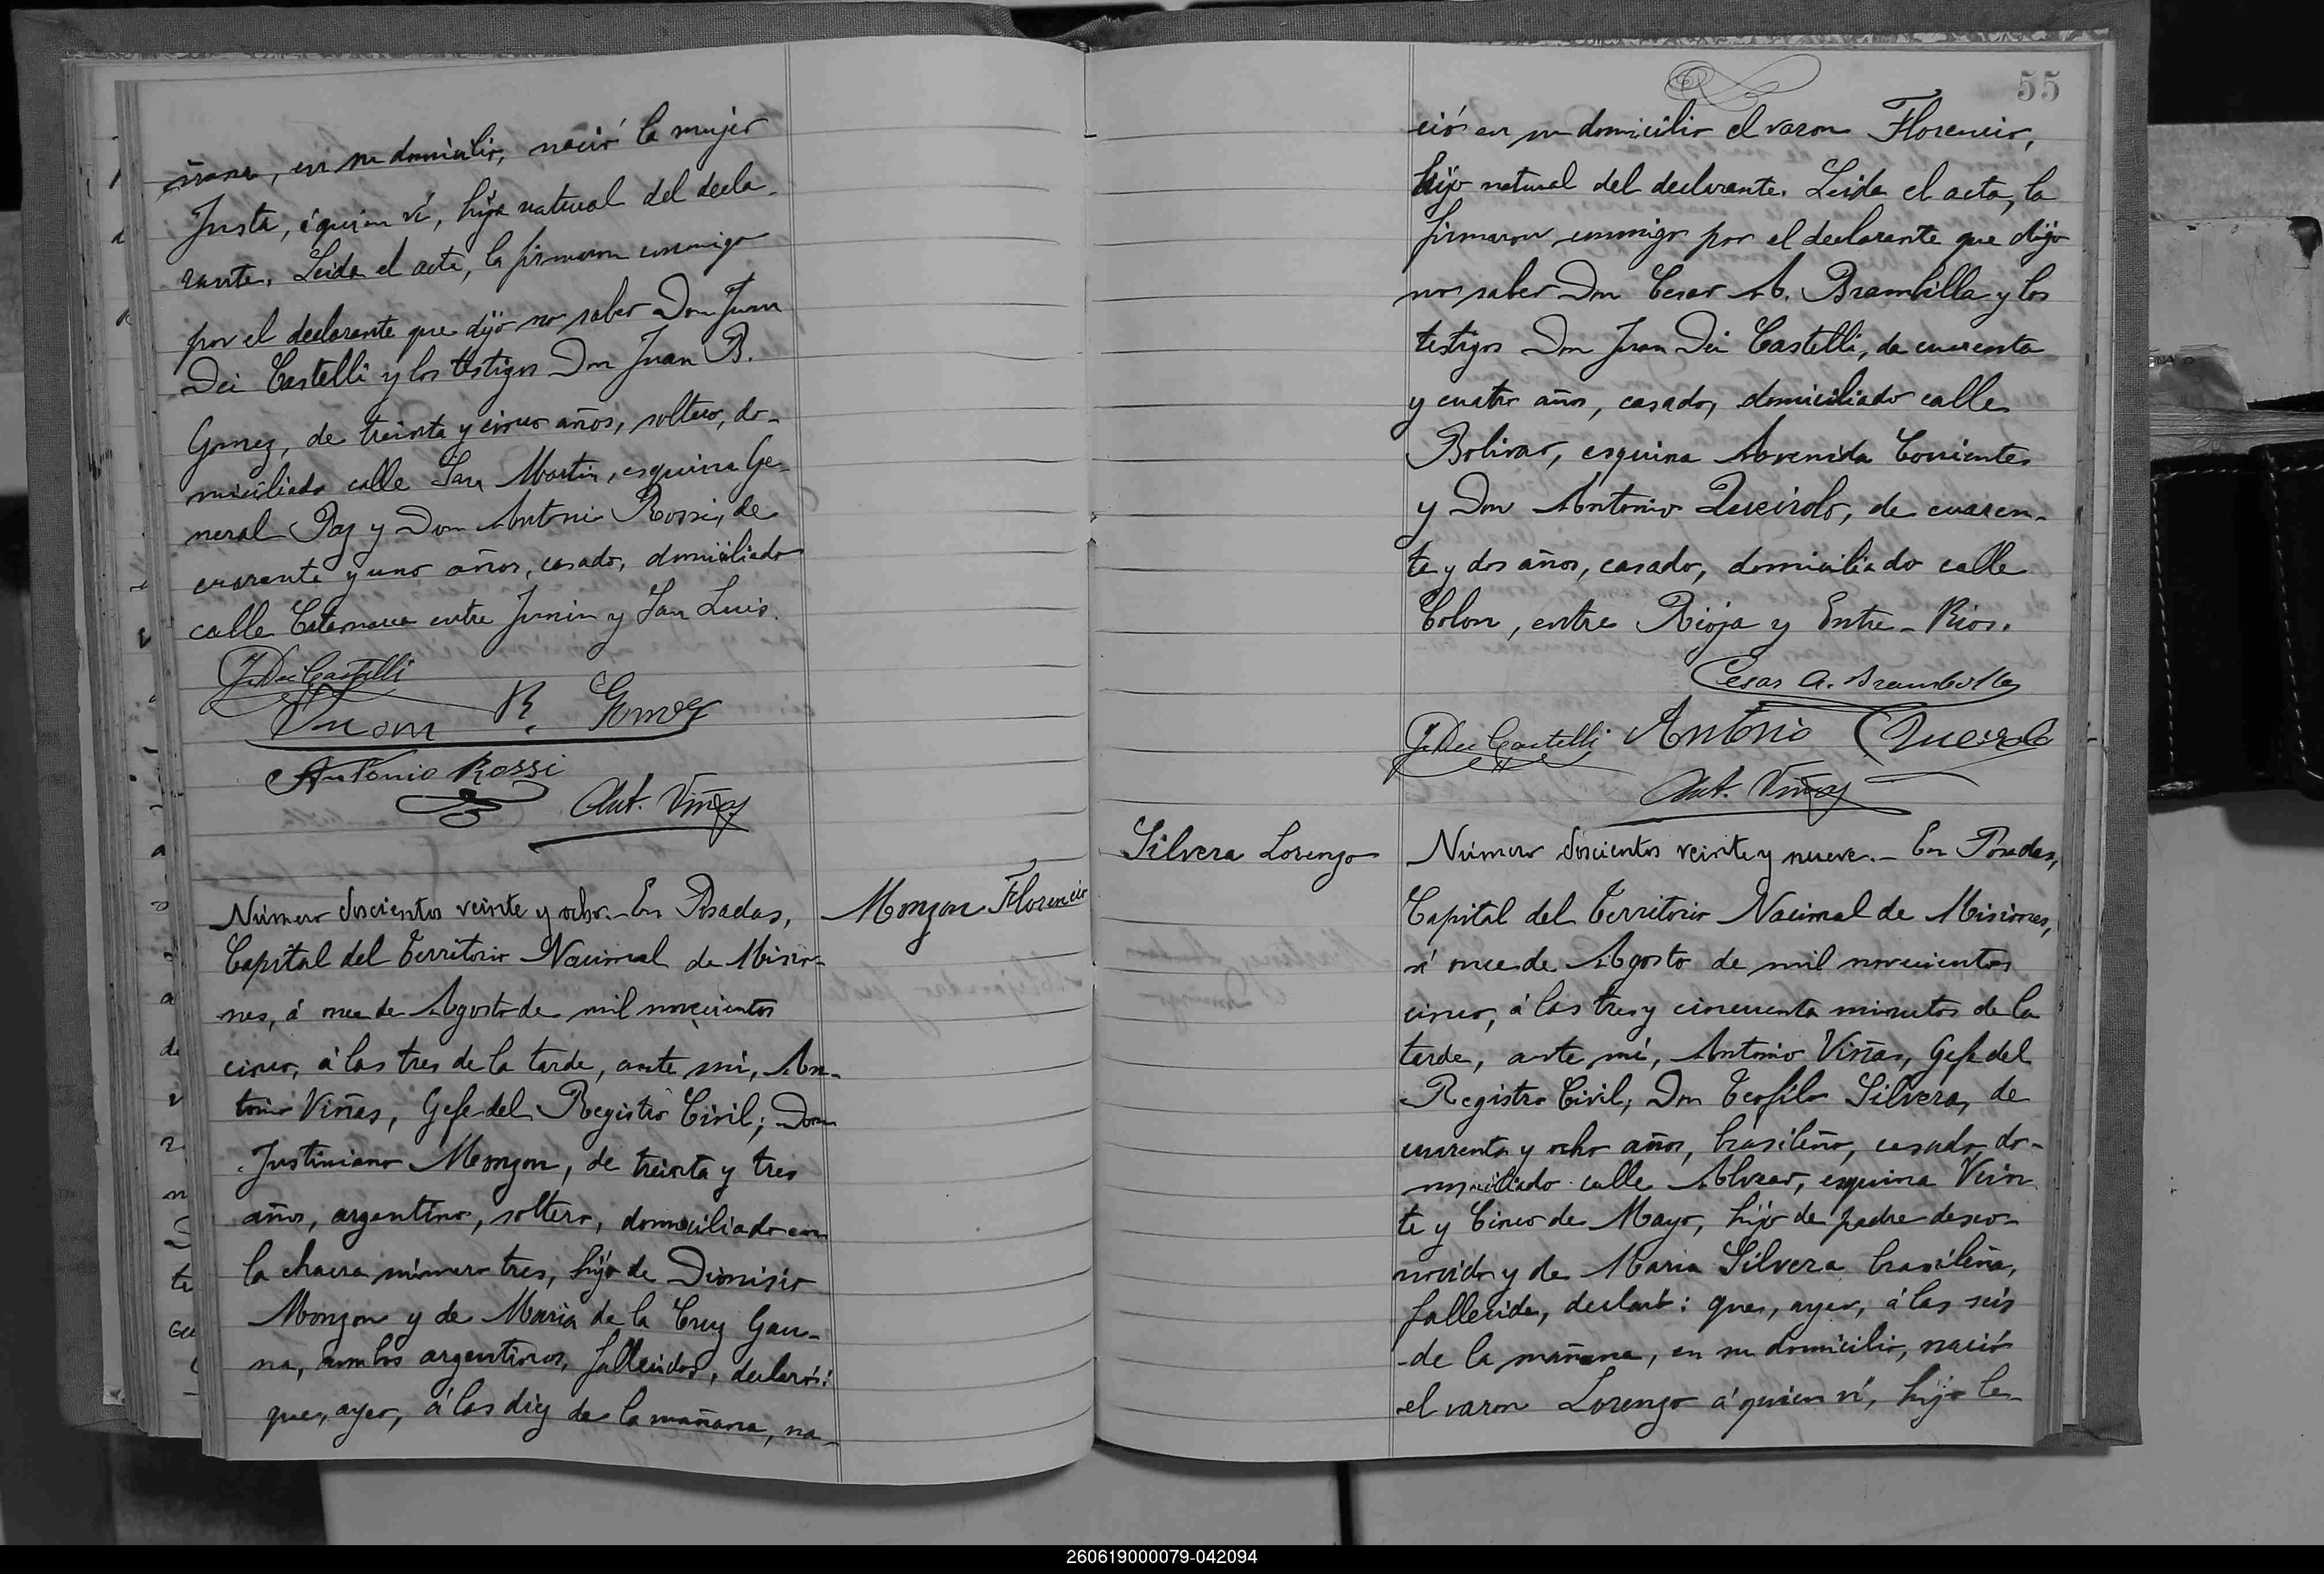 ñana, en su domicilio, nació la mujer
Justa, á quien ví, hija natural del decla-
rante. Leida el acta, la firmaron conmigo
por el declarante que dijo no saber Don Juan
Dei Castelli y los testigos Don Juan B.
Gomez, de treinta y cinco años, soltero, do-
miciliado calle San Martin, esquina Ge-
neral Paz y Don Antonio Rossi, de
cuarenta y uno años, casado, domiciliado
calle Catamarca entre Junin y San Luis.
J. Dei Castelli
Juan R. Gomez
Antonio Rossi
Ant. Viñas
Número doscientos veinte y ocho.- En Posadas,
Capital del Territorio Nacional de Misio-
nes, á once de Agosto de mil novecientos
cinco, á las tres de la tarde, ante mí, An-
tonio Viñas, Gefe del Registro Civil; Don
Justiniano Monzon, de treinta y tres
años, argentino, soltero, domiciliado en
la chacra número tres, hijo de Dionisio
Monzon y de Maria de la Cruz Gau-
na, ambos argentinos, fallecidos, declaró:
que, ayer, á las diez de la mañana, na-
Monzon Florencio
55
ció en su domicilio el varon Florencio,
hijo natural del declarante. Leida el acta, la
firmaron conmigo por el declarante que dijo
no saber Don Cesar A. Brambilla y los
testigos Don Juan Dei Castelli, de cuarenta
y cuatro años, casado, domiciliado calle
Bolivar, esquina Avenida Corrientes
y Don Antonio Queirolo, de cuaren-
ta y dos años, casado, domiciliado calle
Colon, entre Rioja y Entre-Rios.
Cesar A. Brambilla
J. Dei Castelli Antonio Queirolo
Ant. Viñas
Silvera Lorenzo
Número doscientos veinte y nueve.- En Posadas,
Capital del Territorio Nacional de Misiones,
á once de Agosto de mil novecientos
cinco, á las tres y cincuenta minutos de la
tarde, ante mí, Antonio Viñas, Gefe del
Registro Civil; Don Teofilo Silvera, de
cuarenta y ocho años, brasileño, casado, do-
miciliado calle Alvear, esquina Vein
te y Cinco de Mayo, hijo de padre desco-
nocido y de Maria Silvera brasileña,
fallecida, declaró: que, ayer, á las seis
de la mañana, en su domicilio, nació
el varon Lorenzo á quien ví, hijo le-
260619000079-042094